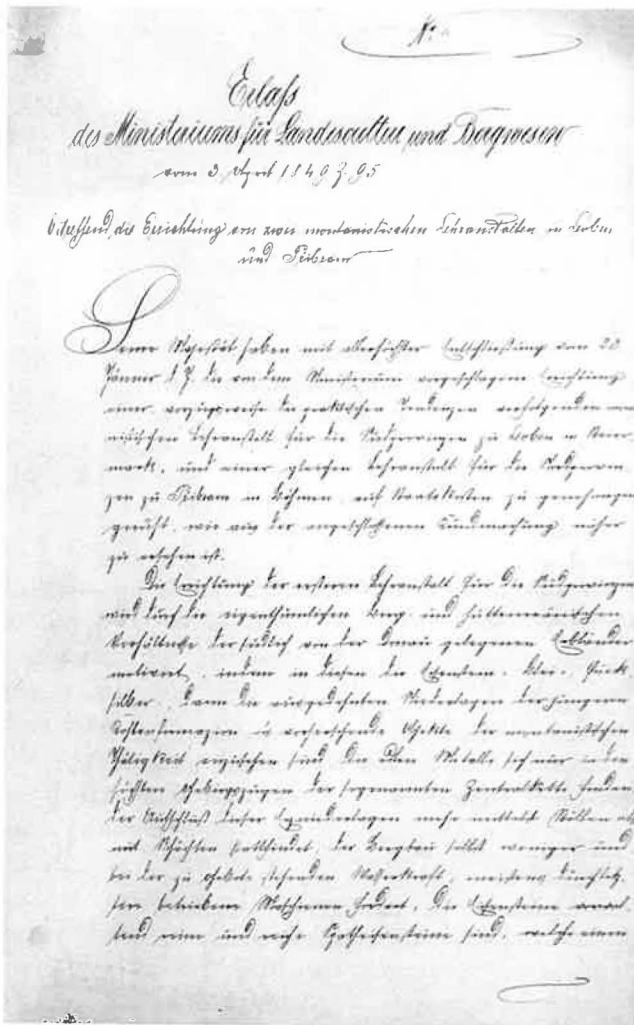 No
Erlaß
des Ministeriums für Landescultur und Bergwesen
vom 3. April 1849 Z. 95
betreffend die Errichtung von zwei montanistischen Lehranstalten in Leoben
und Pribram
Seine Majestät haben mit allerhöchster Entschließung vom 23
Jänner d. J. die von dem Ministerium vorgeschlagene Errichtung
einer vorzugsweise die praktischen Tendenzen verfolgenden mon
nistischen Lehranstalt für die Südprovinzen zu Leoben in Steier-
mark, und einer gleichen Lehranstalt für die Nordprovin-
zen zu Pribram in Böhmen auf Staatskosten zu genehmigen
geruht, wie aus der angeschlossenen Kundmachung näher
zu ersehen ist.
Die Errichtung der ersteren Lehranstalt für die Südprovinzen
wird durch die eigenthümlichen Berg- und hüttenmännischen
Verhältnisse der südlich von der Donau gelegenen Erbländer
motivirt, indem in diesen die Eisenstein-, Blei-, Queck-
silber-, dann die ausgedehnten Niederlagen der jüngeren
vorherrschende Objekte der montanistischen
Thätigkeit sind. Die edlen Metalle sich nur in den
höchsten Gebirgszügen der sogenannten Zentralkette finden
der Aufschluß dieser Erzniederlagen mehr mittelst Stollen als
mit Schächten stattfindet, der Bergbau selbst weniger und
bei der zu Gebote stehenden Wasserkraft, meistens durch
betriebene Maschinen fordert, die Eisensteine
tend reine und reiche sind, welche einen